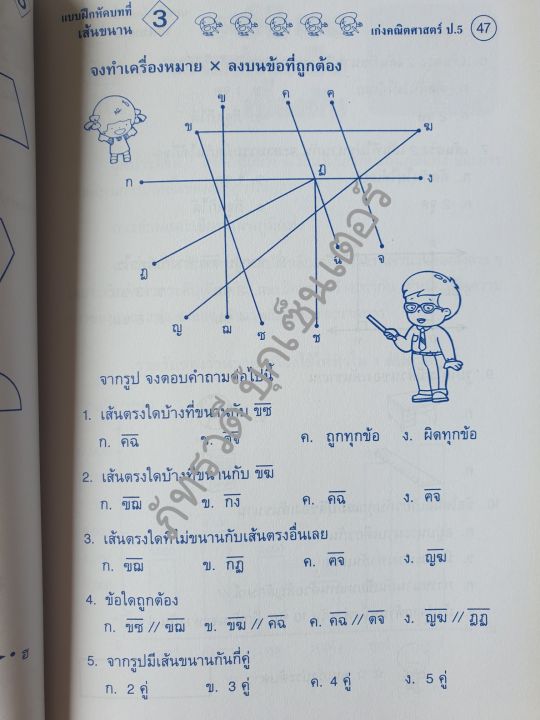 แบบฝึกหัดบทที่ 3
เส้นขนาน
เก่งคณิตศาสตร์ ป.5 47
จงทำเครื่องหมาย × ลงบนข้อที่ถูกต้อง
ฃ ค ฅ
ข ฆ
ก ฎ ง
ฏ ฉ จ
ญ ฌ ซ ช
จากรูป จงตอบคำถามต่อไปนี้
1. เส้นตรงใดบ้างที่ขนานกับ ขซ
ก. คฉ ข. ฅจ ค. ถูกทุกข้อ ง. ผิดทุกข้อ
2. เส้นตรงใดบ้างที่ขนานกับ ขฆ
ก. ฃฌ ข. กง ค. คฉ ง. ฅจ
3. เส้นตรงใดที่ไม่ขนานกับเส้นตรงอื่นเลย
ก. ฃฌ ข. กฎ ค. ฅจ ง. ญฆ
4. ข้อใดถูกต้อง
ก. ขซ // ฃฌ ข. ขฆ // คฉ ค. คฉ // ฅจ ง. ญฆ // ฎฏ
5. จากรูปมีเส้นขนานกันกี่คู่
ก. 2 คู่ ข. 3 คู่ ค. 4 คู่ ง. 5 คู่
ภัทรวดี บุ๊กเซ็นเตอร์